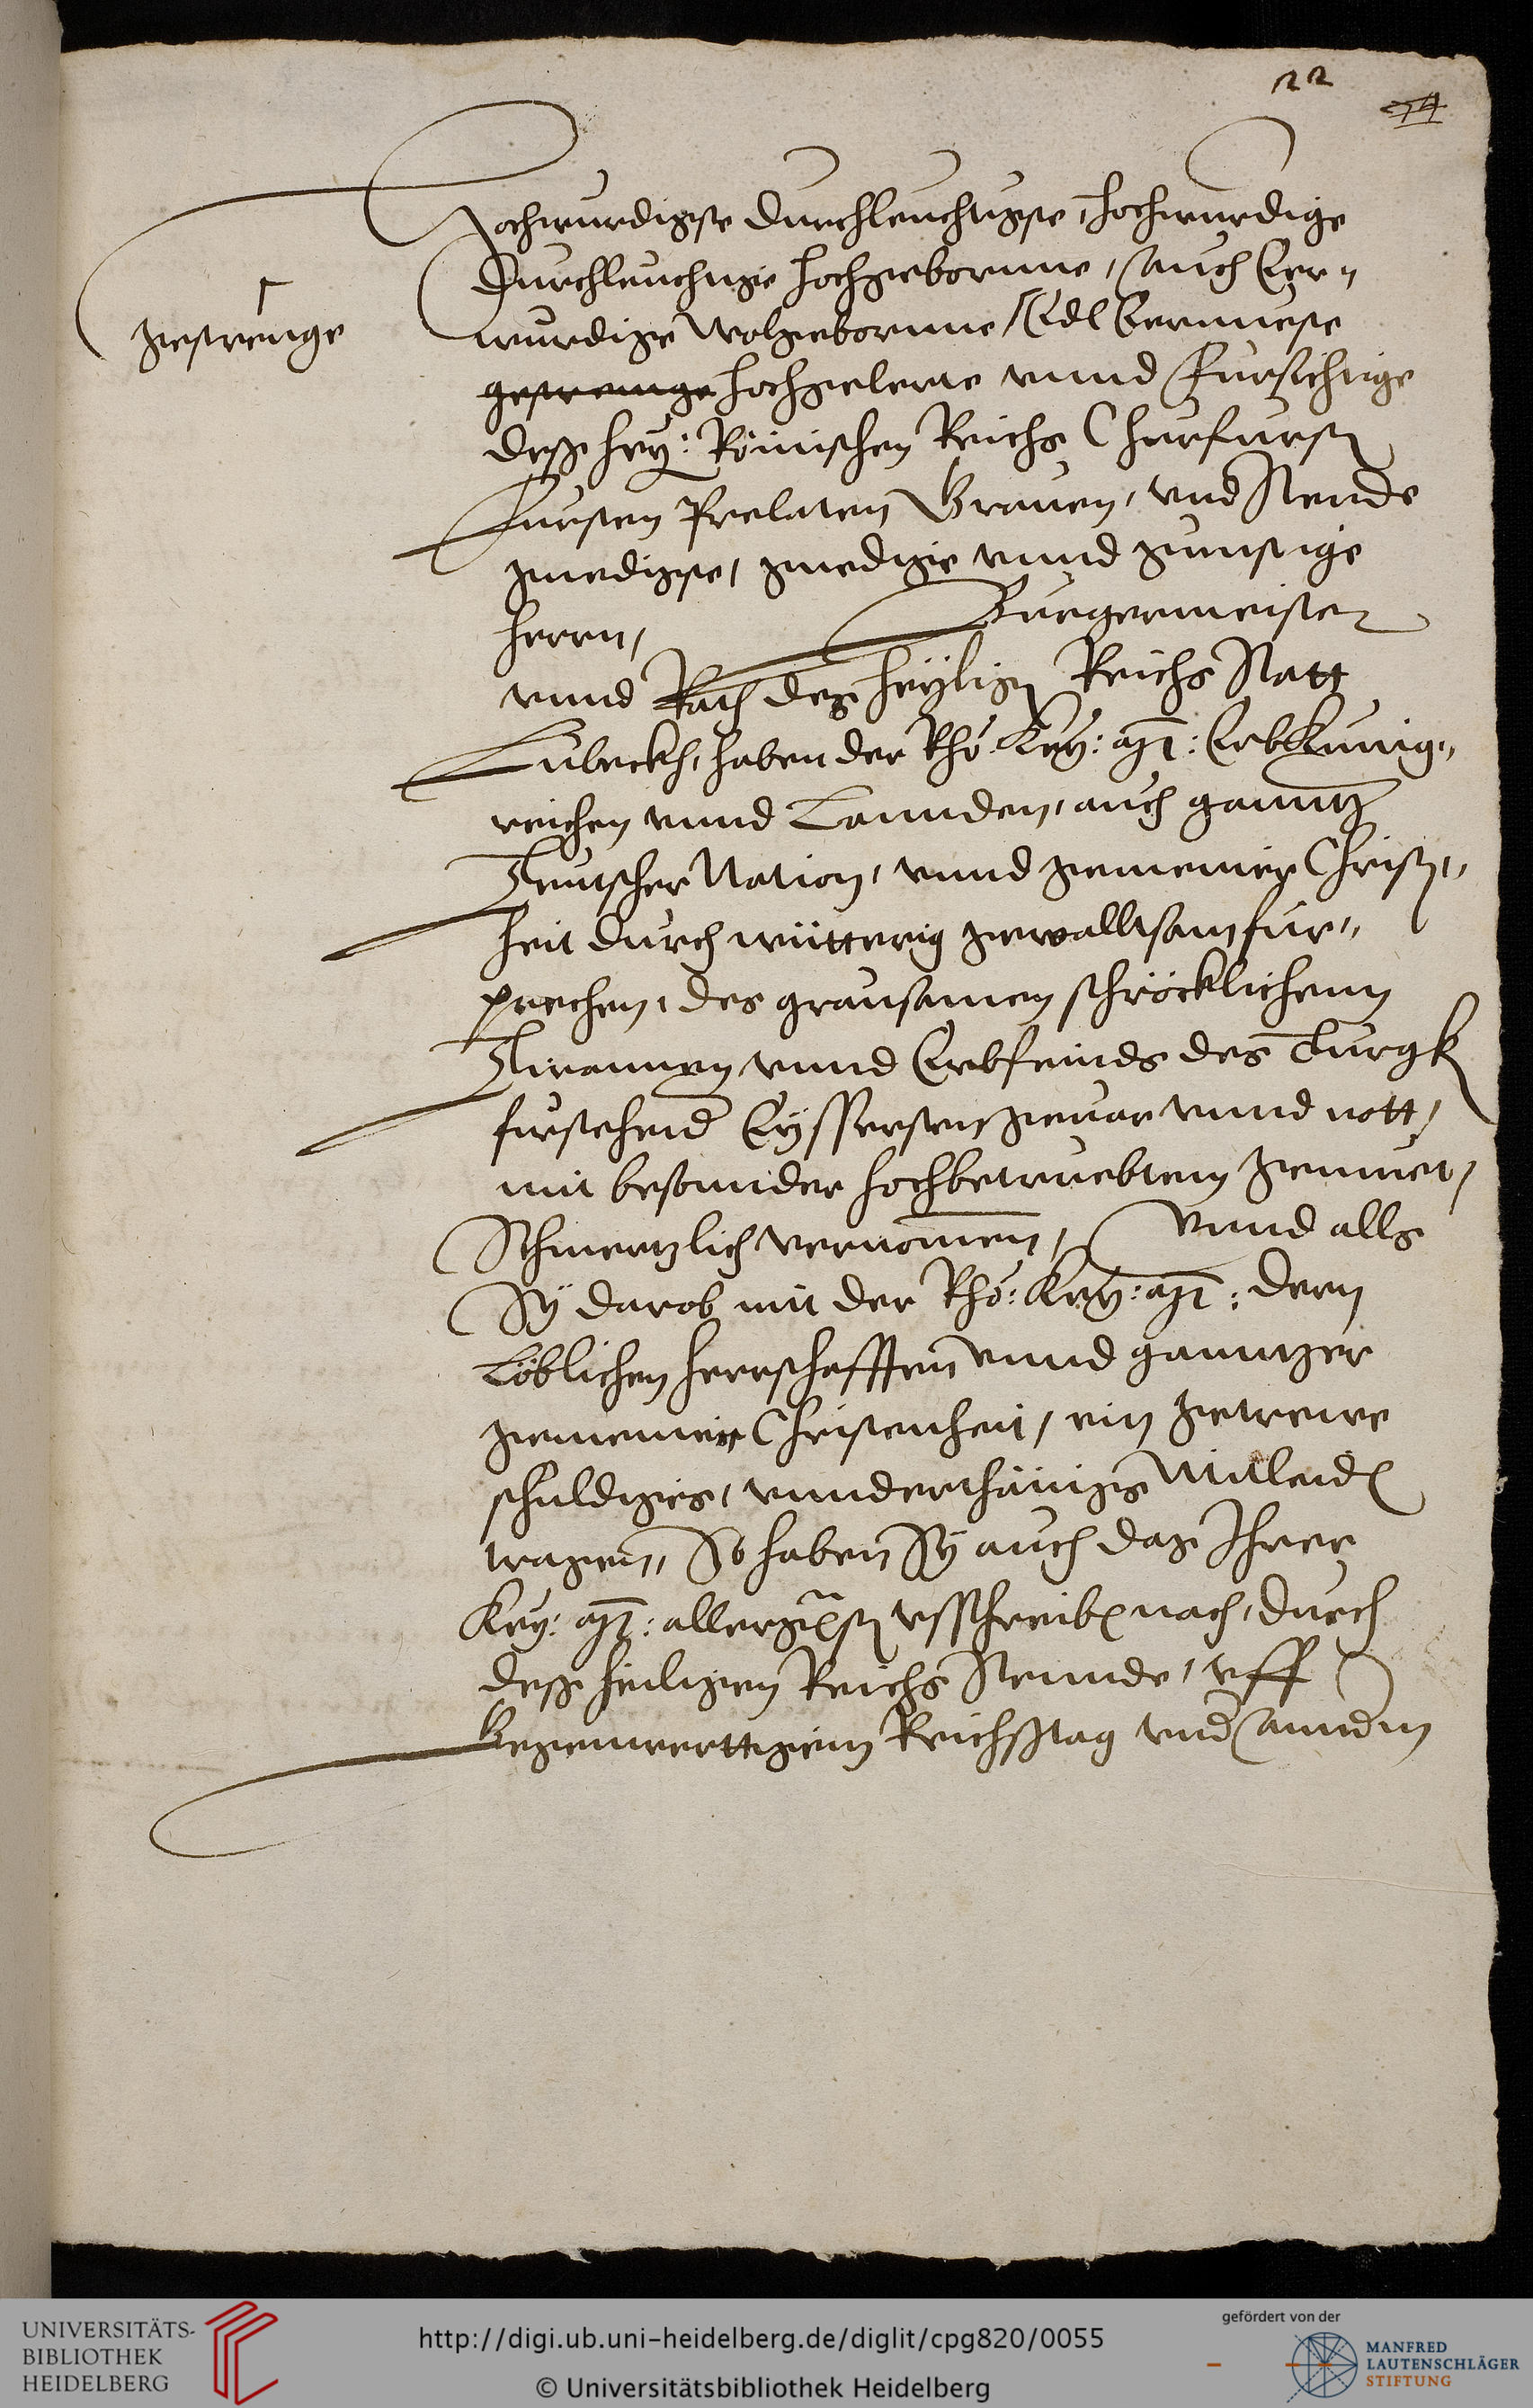 22
Hochwurdigste durchleuchtigste, hochwurdige
durchleuchtige hochgebornne, auch Eer-
gestrenge
wurdige wolgebornne, Edl Ernueste
gestrennge hochgelerte vnnd fursichtige
dess hey: Römischen Reichs Churfursten
Fursten Prelaten Grauen, vnd Stende
gnedigste, gnedige vnnd gunstige
herrn, Burgermeister
vnnd Rath des heyligen Reichs Statt
Lübeckh, haben der Rhö: Key: Mt: Erbkunig-
reichen vnnd Lannden, auch ganntz
Teutscher Nation, vnnd gemeiner Christen-
heit durch wütterig gewalltsam fur-
prechen, des grausamen schröcklichenn
Tirannen vnnd Erbfeinds des Turgken
furstehend Eyssersten geuar vnnd nott,
mit besonnder hochbetruebtem gemuet,
Schmertzlich vernomen, Vnnd alls
Sy darob mit der Rhö: Key: Mt: dern
Löblichen herrschafften vnnd ganntzer
gemeiner Christenheit, ein getrewe
schuldiges, vnnderthänigs Mitleiden
tragen, So haben Sy auch das Ihrer
Key: Mt: allergnsten vsschreiben nach, durch
dess heiligen Reichs Stennde, vff
kegenwerttigem Reichsstag vnd
http://digi.ub.uni-heidelberg.de/diglit/cpg820/0055
© Universitätsbibliothek Heidelberg
UNIVERSITÄTS-
BIBLIOTHEK
HEIDELBERG
gefördert von der
MANFRED
LAUTENSCHLÄGER
STIFTUNG